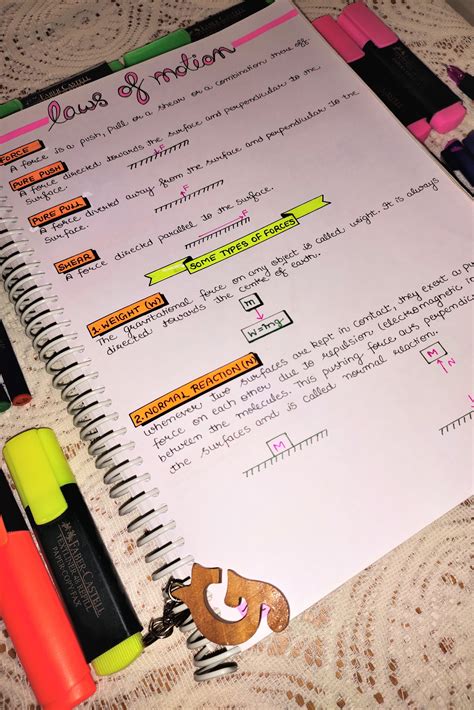 Laws of motion
FORCE
A force is a push, pull or a shear or a combination there off.
PURE PUSH
A force directed towards the surface and perpendicular to the
surface.
F
PURE PULL
A force directed away from the surface and perpendicular to the
surface.
F
SHEAR
A force directed parallel to the surface.
F
SOME TYPES OF FORCES
1. WEIGHT (W)
The gravitational force on any object is called weight. It is always
directed towards the centre of earth.
m
W=mg
2. NORMAL REACTION (N)
Whenever two surfaces are kept in contact, they exert a
force on each other due to repulsion (electromagnetic
between the molecules. This pushing force acts
the surfaces and is called normal reaction.
M
N
M
FABER-CASTELL
FABER-CASTELL
TEXTLINER
PAPER·COPY·FAX